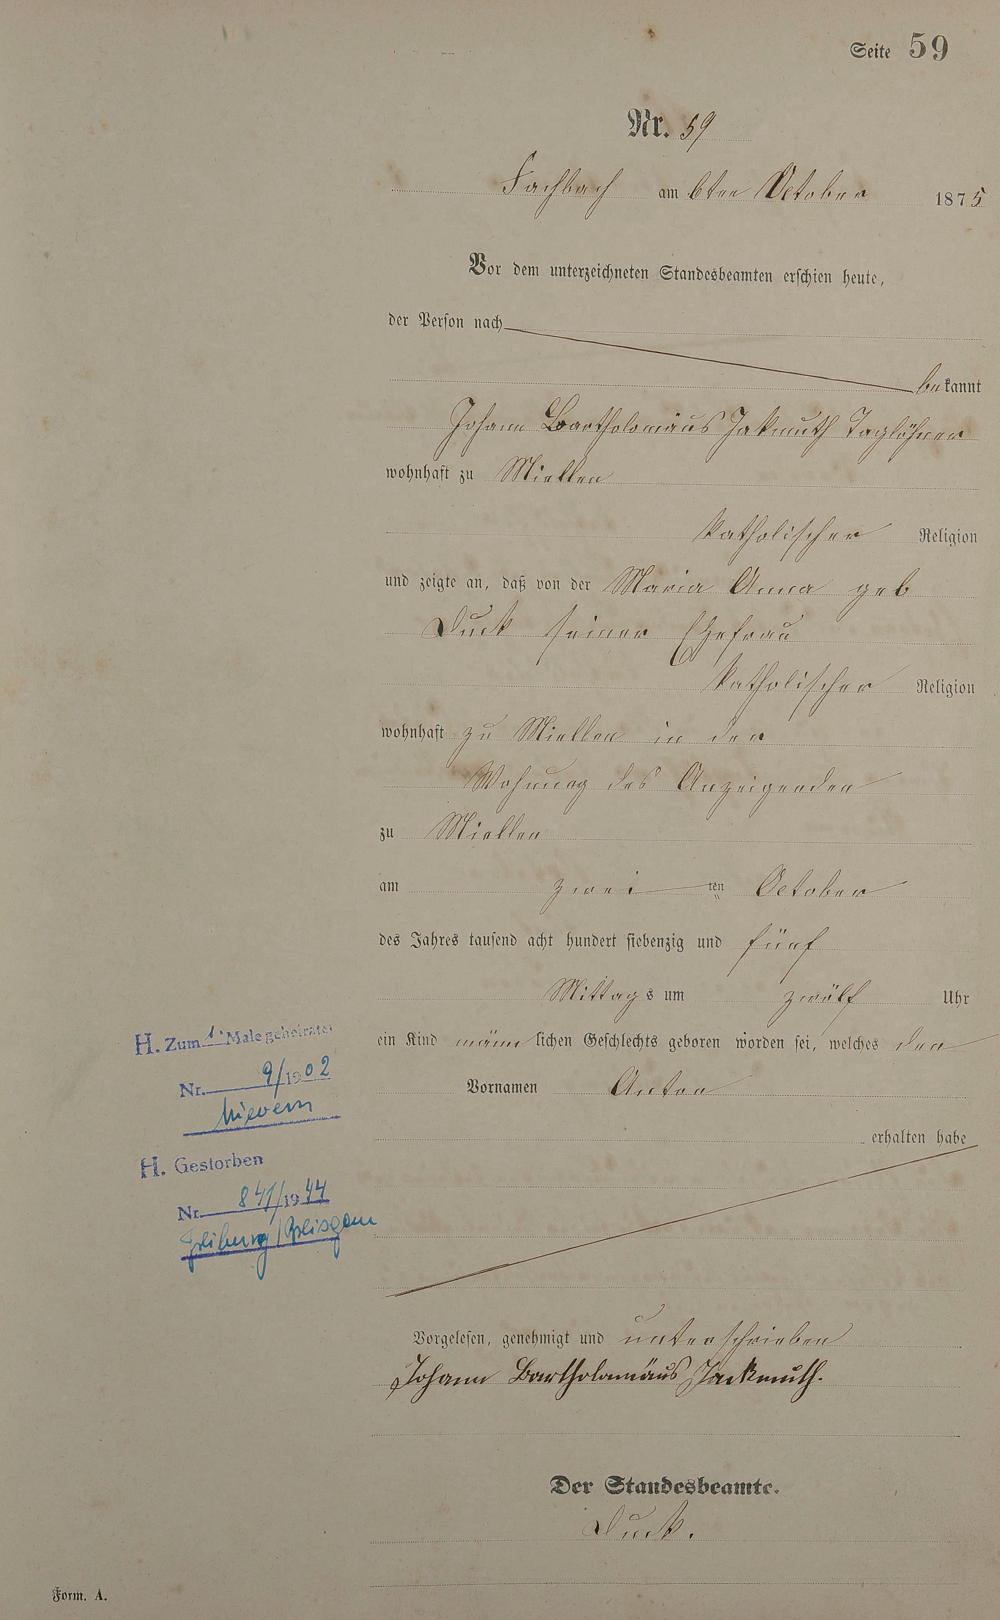 Seite 59
Nr. 59
Fachbach am 6ten October 1875
Vor dem unterzeichneten Standesbeamten erschien heute,
der Person nach
bekannt
Johann Bartholomäus Jakmuth Taglöhner
wohnhaft zu Miellen
katholischer Religion
und zeigte an, daß von der Maria Anna geb
Duck seiner Ehefrau
katholischer Religion
wohnhaft zu Miellen in der
Wohnung des Anzeigenden
zu Miellen
am zwei ten October
des Jahres tausend acht hundert siebenzig und fünf
Mittags um zwölf Uhr
ein Kind männlichen Geschlechts geboren worden sei, welches den
Vornamen Anton
erhalten habe
H. Zum 1. Male geheiratet
Nr. 9/1902
Nievern
H. Gestorben
Nr. 841/1944
Freiburg/Breisgau
Vorgelesen, genehmigt und unterschrieben
Johann Bartholomäus Jackmuth.
Der Standesbeamte.
Duck.
Form. A.